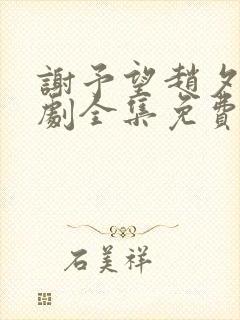 謝予望趙夕
劇全集免費
石美祥